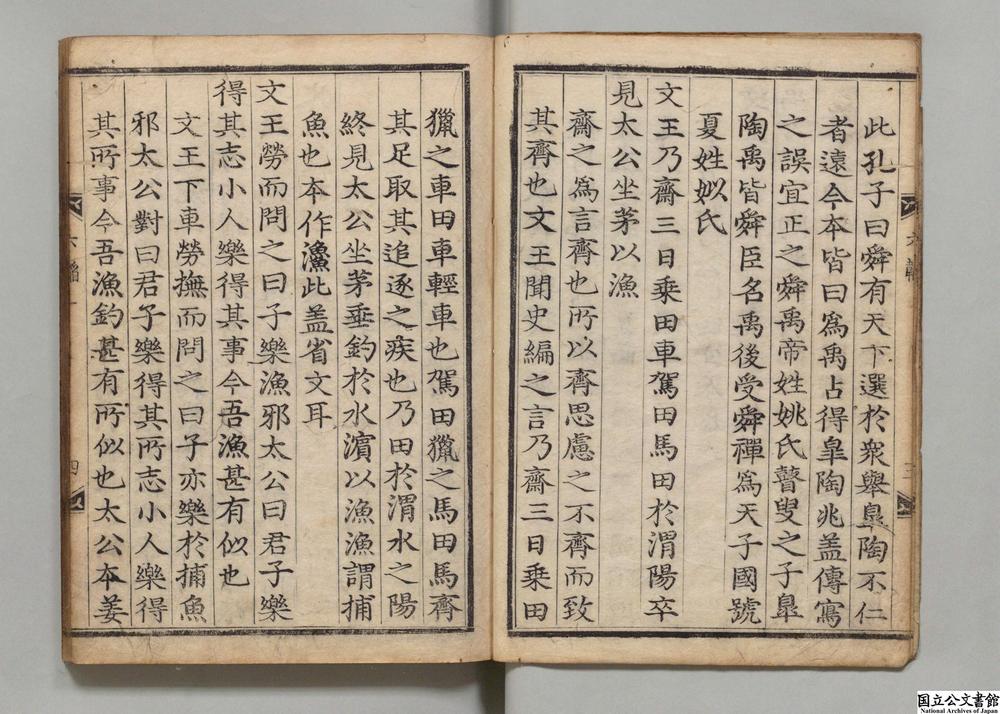 此孔子曰舜有天下選於衆舉臯陶不仁
者遠今本皆曰爲禹占得臯陶兆盖傳寫
之誤宜正之舜禹帝姓姚氏瞽叟之子臯
陶禹皆舜臣名禹後受舜禪爲天子國號
夏姓姒氏
文王乃齋三日乗田車駕田馬田於渭陽卒
見太公坐茅以漁
齋之爲言齊也所以齊思慮之不齊而致
其齊也文王聞史編之言乃齋三日乗田
六韜
三
獵之車田車輕車也駕田獵之馬田馬齊
其足取其追逐之疾也乃田於渭水之陽
終見太公坐茅垂釣於水濱以漁漁謂捕
魚也本作䲣此盖省文耳
文王勞而問之曰子樂漁邪太公曰君子樂
得其志小人樂得其事今吾漁甚有似也
文王下車勞撫而問之曰子亦樂於捕魚
邪太公對曰君子樂得其所志小人樂得
其所事今吾漁釣甚有所似也太公本姜
六韜一
四
国立公文書館
National Archives of Japan